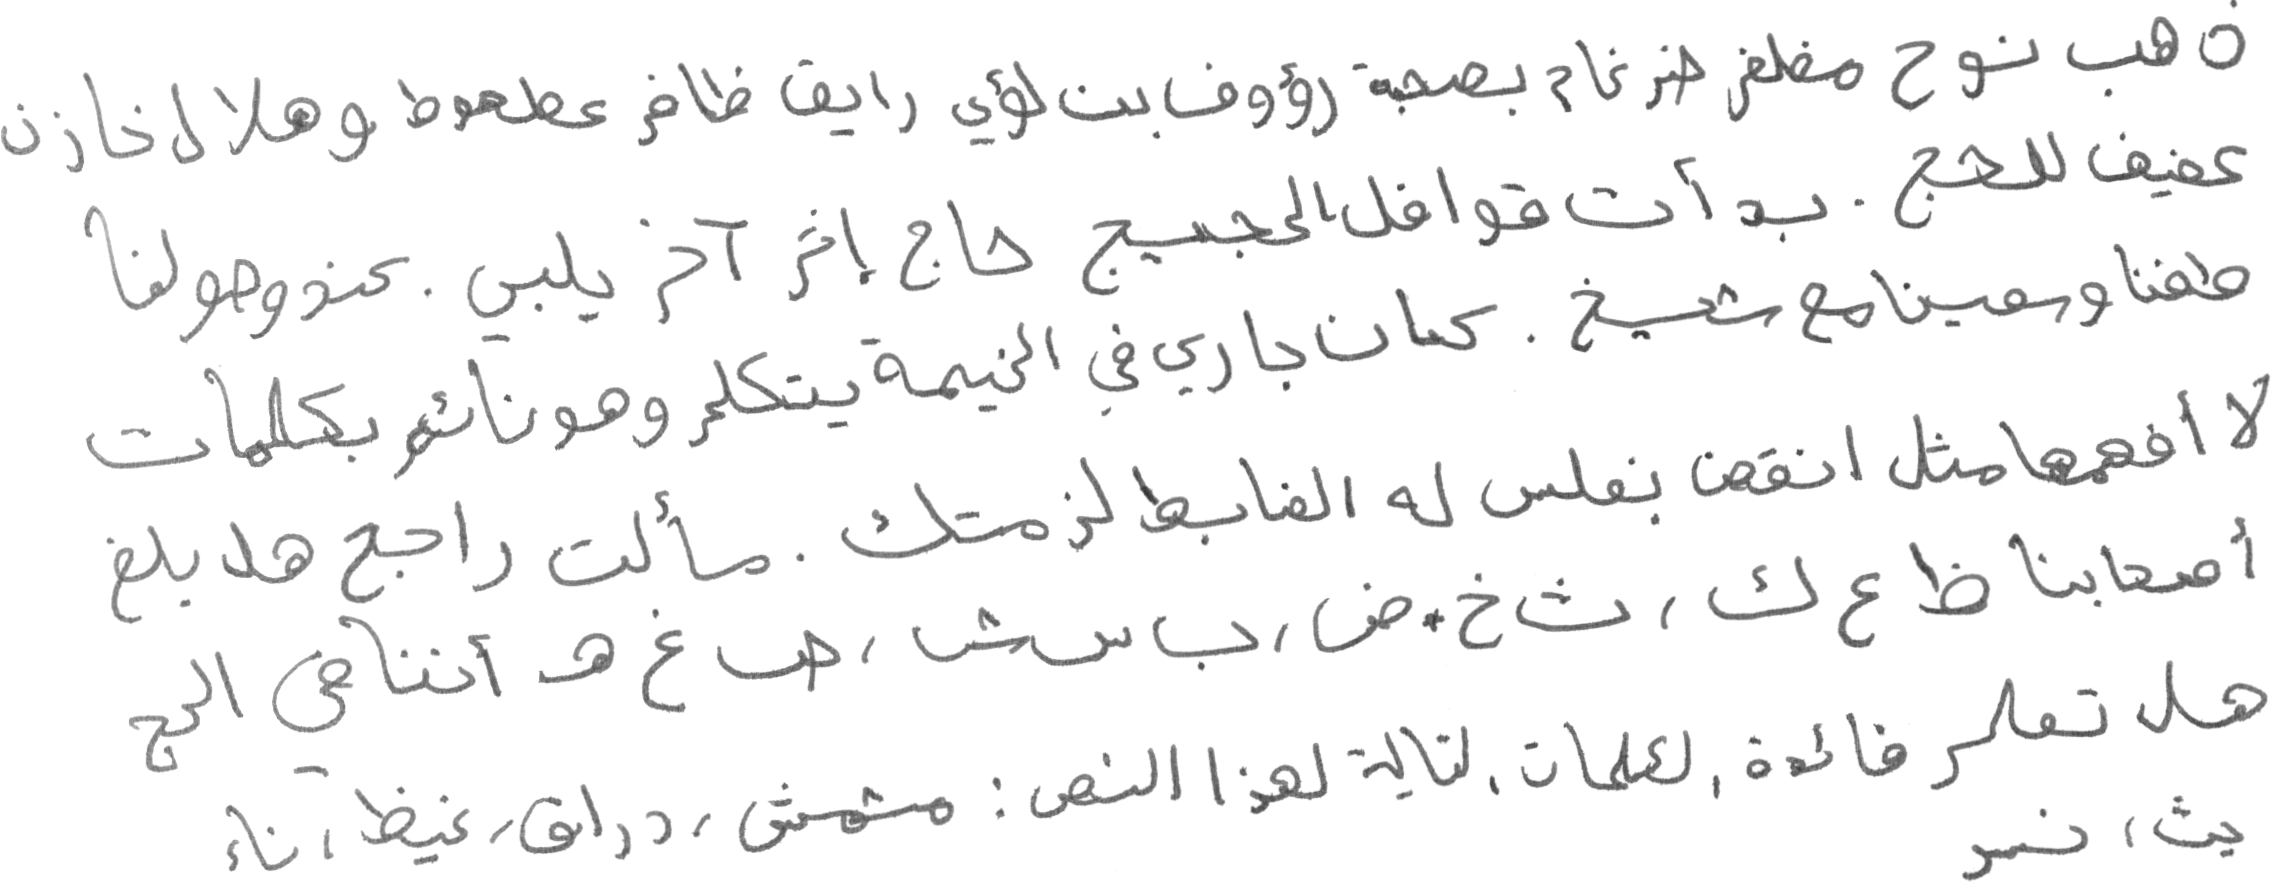 ذهب نوح مظفر ضرغام بصحبة رؤوف بن لؤي رايق ظافر عطعوط و هلال خازن
عفيف للحج . بدأت قوافل الحجيج حاج إثر آخر يلبي . عند وصولنا
طفنا وسعينا مع شيخ . كان جاري في الخيمة يتكلم وهو نائم بكلمات
لا أفهمها مثل انقض بفلس له الضابط لزمتك . سألت راجح هل بلغ
أصحابنا ظ ع ك ، ث خ . ض ، ب س ش ، ص غ هـ أننا في الحج
هل تعلم فائدة الكلمات التالية لهذا النص : مشمش ، دراق ، غيظ ، ناء
يث ، نسر